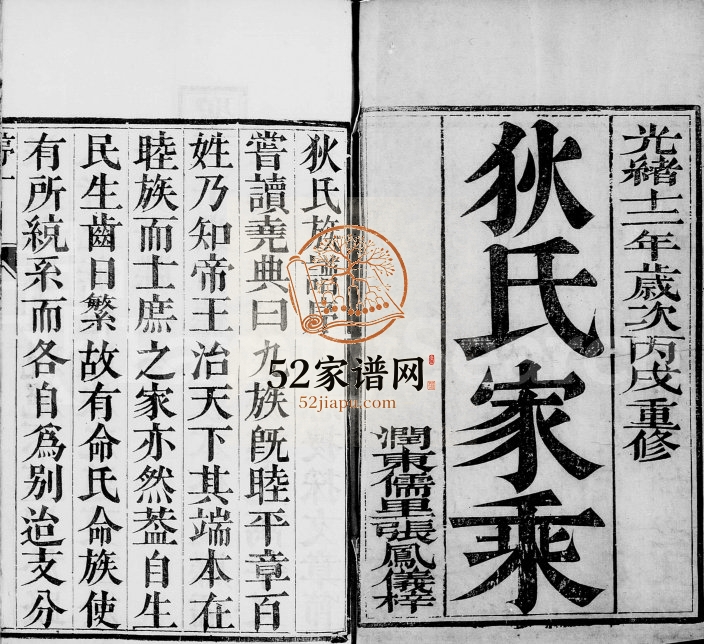 光緒十二年歲次丙戌重修
狄氏家乘
潤東儒里張鳳儀梓
狄氏族譜序
嘗讀堯典曰九族旣睦平章百
姓乃知帝王治天下其端本在
睦族而士庶之家亦然葢自生
民生齒日繁故有命氏命族使
有所統系而各自爲別迨支分
52家谱网
52jiapu.com